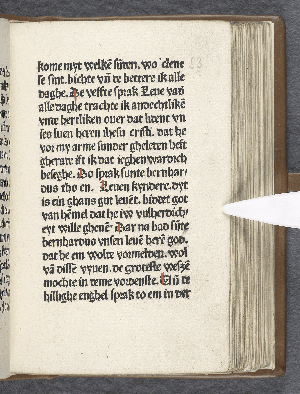 kome myt welkē sūnen. wo clene
se sint. bichte vn̄ te betere ik alle
daghe. De veffte sprak Leue vad
alle daghe trachte ik andechtlikē
vnte hertliken ouer dat lident vn
ses leuen heren ihesu cristi. dat he
vor my arme sunder gheleten heft
gherade eft ik dat ieghenwardich
beseghe. Do sprak sunte bernhar-
dus tho en. Leuen kyndere. dyt
is ein ghans gut leuēt. biddet got
van hēmel dat he iw vulherdich
eyt wille gheuē. Dar na bad sūte
bernhardus vnsen leuē herē god.
dat he em wolde vormelden. wol
van disse vyuen. de groteste wesze
mochte in deme vordenste. Vn̄ de
hillighe enghel sprak to em in der